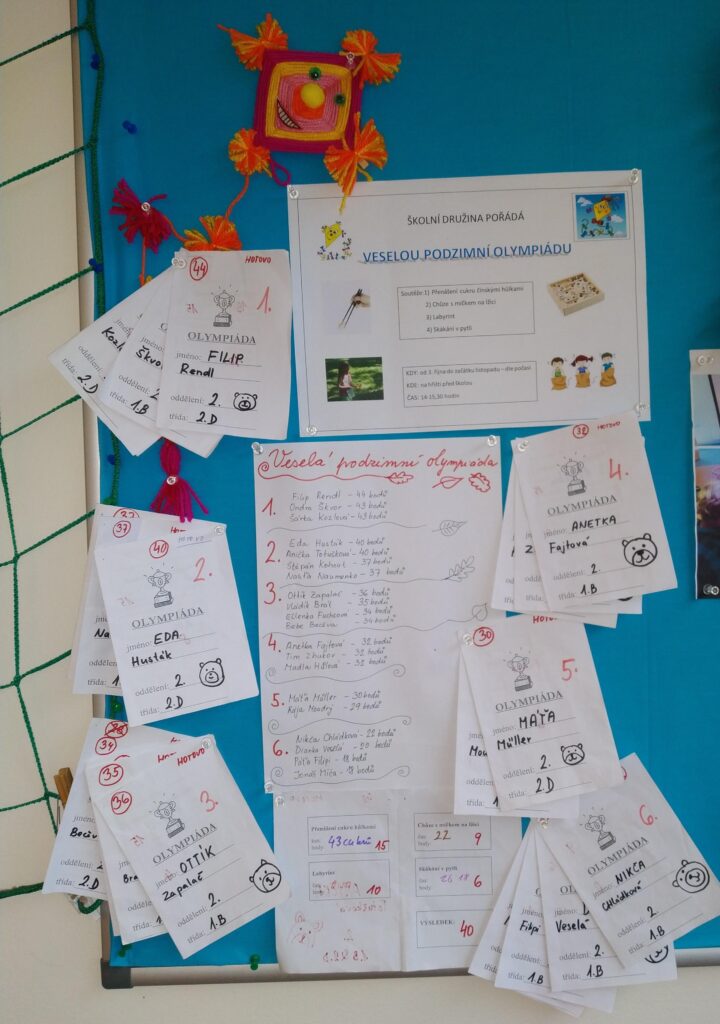 ŠKOLNÍ DRUŽINA POŘÁDÁ
VESELOU PODZIMNÍ OLYMPIÁDU
Soutěže: 1) Přenášení cukru čínskými hůlkami
2) Chůze s míčkem na lžíci
3) Labyrint
4) Skákání v pytli
KDY: od 3. října do začátku listopadu – dle počasí
KDE: na hřišti před školou
ČAS: 14-15,30 hodin
44
HOTOVO
1.
OLYMPIÁDA
jméno: FILIP
Rendl
oddělení: 2.
třída: 2.D
Škvo
oddělení
třída: 1.B
Kozl
oddělení
třída: 2.D
Veselá podzimní olympiáda
1.
Filip Rendl - 44 bodů
Ondra Škvor - 43 bodů
Šárka Kozlová - 43 bodů
2.
Eda Husták - 40 bodů
- 40 bodů
Štěpán Kohout - 37 bodů
Nasťa Naumenko - 37 bodů
3.
Ottík Zapalač - 36 bodů
Vládík Brál - 35 bodů
- 34 bodů
- 34 bodů
4.
Anetka Fajtová - 32 bodů
Tim - 32 bodů
- 32 bodů
5.
Máťa Müller - 30 bodů
- 29 bodů
6.
Nikča Chládková - 22 bodů
Dianka Veselá - 20 bodů
Filipi - 18 bodů
Jonáš Míča - 18 bodů
37
40
2.
OLYMPIÁDA
jméno: EDA
Husták
oddělení: 2
třída: 2.D
Na
34
35
36
HOTOVO
3.
OLYMPIÁDA
jméno: OTTÍK
Zapalač
oddělení: 2.
třída: 1.B
třída: 2.D
32
HOTOVO
4.
OLYMPIÁDA
jméno: ANETKA
Fajtová
oddělení: 2
třída: 1.B
30
5.
OLYMPIÁDA
jméno: MÁŤA
Müller
oddělení: 2.
třída: 2.D
6.
OLYMPIÁDA
jméno: NIKČA
Chládková
oddělení: 2
třída: 1.B
Veselá
oddělení: 2.
třída: 1.B
Filipi
oddělení
třída: 1.B
Přenášení cukru hůlkami
43 cukrů
body: 15
Labyrint
body: 10
Chůze s míčkem na lžíci
čas: 22
body: 9
Skákání v pytli
body: 6
VÝSLEDEK: 40